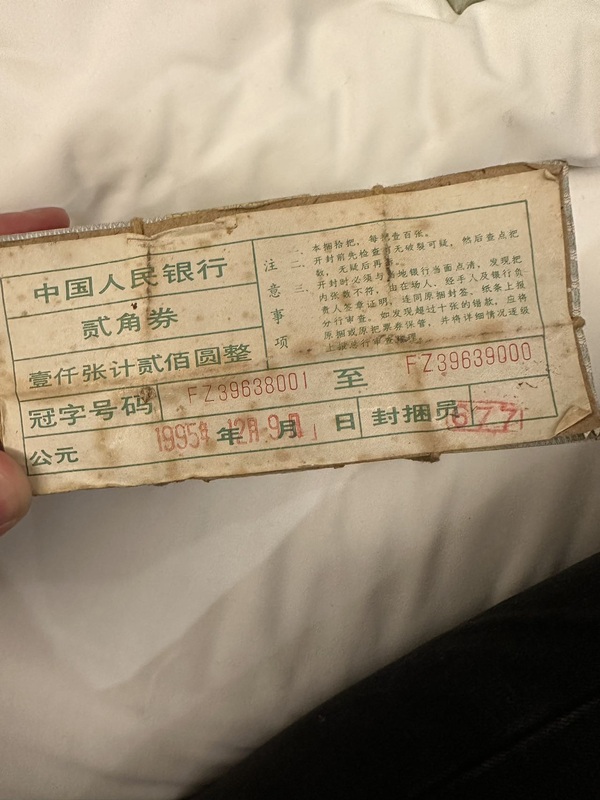 中国人民银行
贰角券
壹仟张计贰佰圆整
注意事项
一、本捆拾把，每把壹百张。
二、开封前先检查有无破裂可疑，然后查点把
数，无疑后再
三、开封时必须与当地银行当面点清，发现把
内张数不符，由在场人、经手人及银行负
责人签章证明，连同原捆封签、纸条上报
分行审查。如发现超过十张的错款，应将
原捆或原把票券保管，并将详细情况逐级
上报总行审查处理。
冠字号码 FZ39638001 至 FZ39639000
公元 1995年 年 12月 9日 月 日 封捆员 677